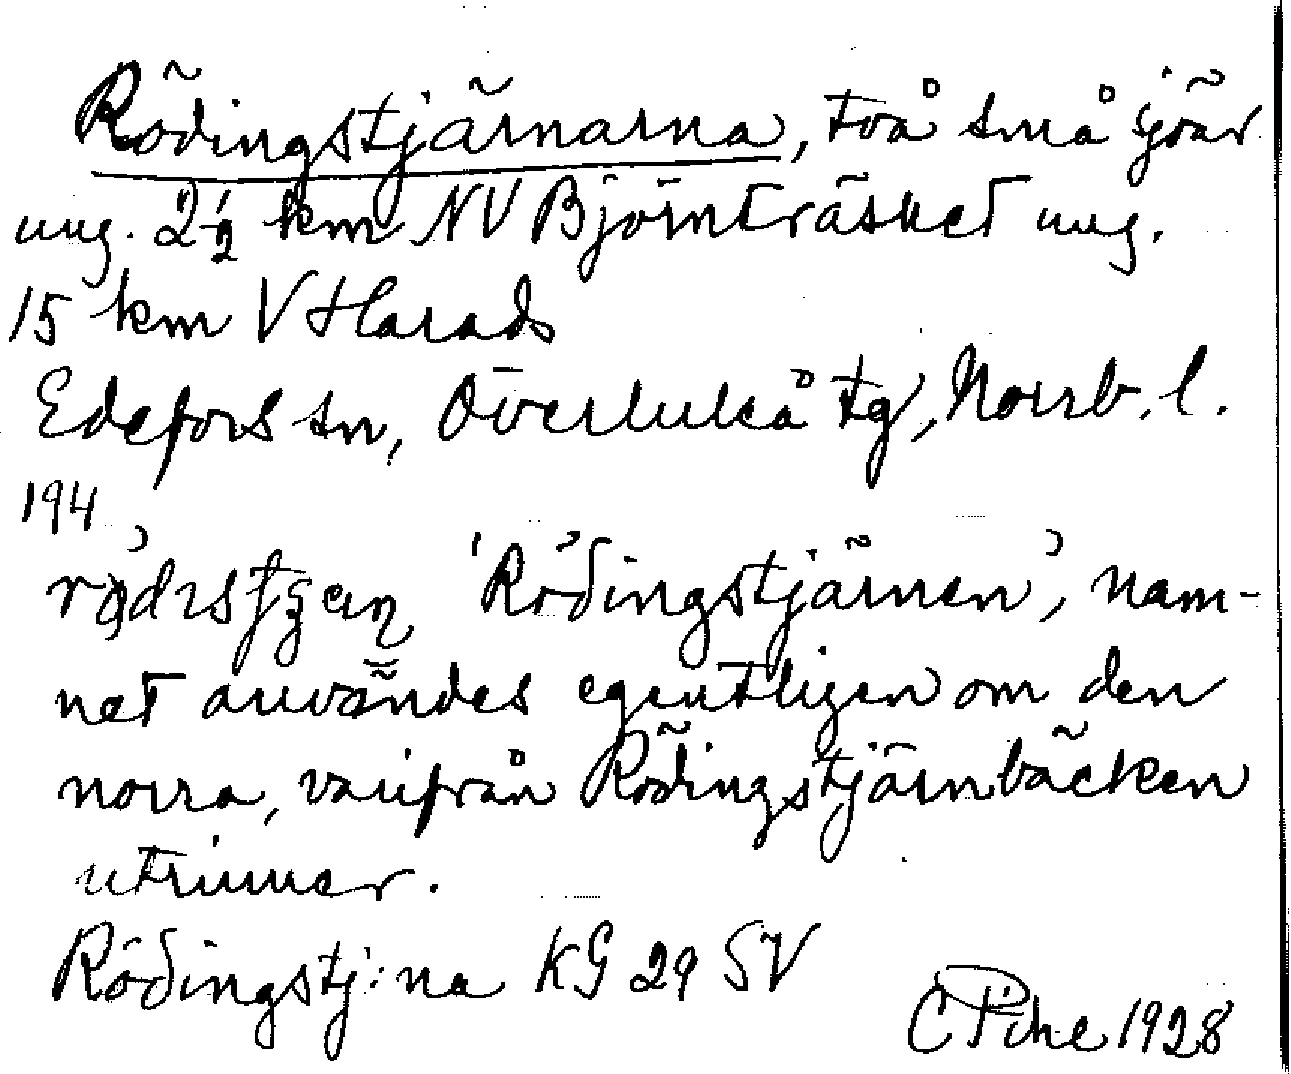 Rödingstjärnarna, två små sjöar
ung. 2½ km NV Björnträsket ung.
15 km V Harads
Edefors sn, Överluleå tg, Norrb. l.
194
'Rödingstjärnen', nam-
net användes egentligen om den
norra, varifrån Rödingstjärnbäcken
utrinner.
Rödingstj:na KG 29 SV
C Pihe 1928